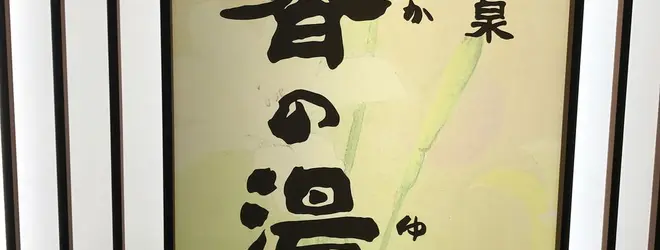 泉
か　ゆ
香の湯